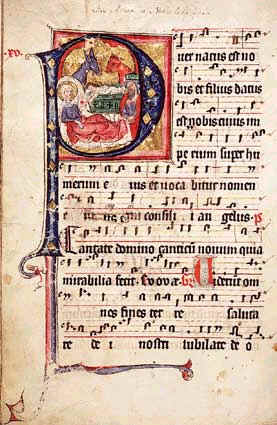 xv.
Puer natus est no
bis et filius datus
est nobis cuius im
pe rium super hu
merum e ius et voca bitur nomen
e ius consili i an gelus. p
Cantate domino canticū novum quia
mirabilia fecit. Evovae. Viderūt om
nes fines ter re saluta
re de i nostri iubilate de o